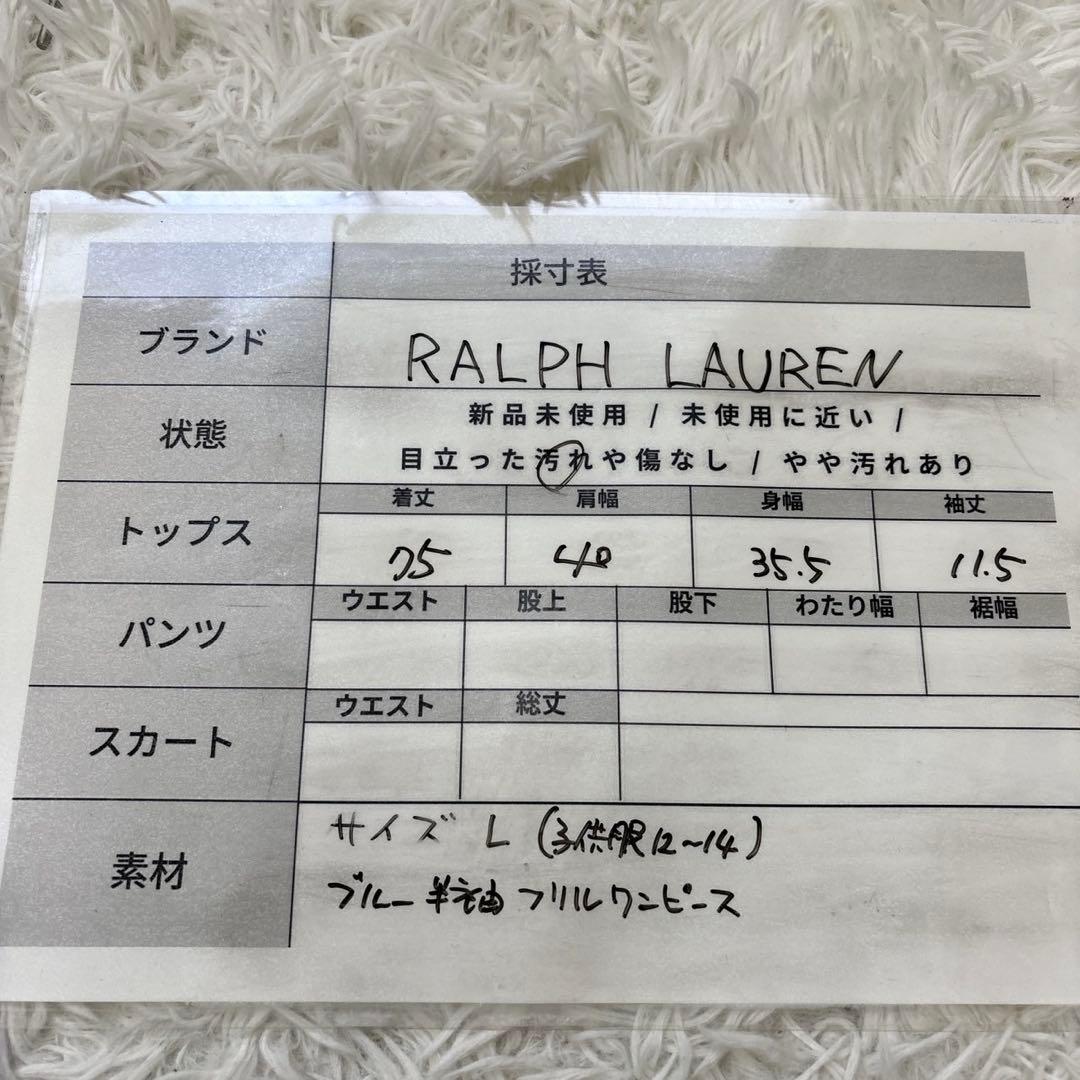 採寸表
ブランド RALPH LAUREN
状態 新品未使用 / 未使用に近い /
目立った汚れや傷なし / やや汚れあり
トップス 着丈 肩幅 身幅 袖丈
75 40 35.5 11.5
パンツ ウエスト 股上 股下 わたり幅 裾幅
スカート ウエスト 総丈
素材 サイズ L (子供服12~14)
ブルー 半袖 フリルワンピース